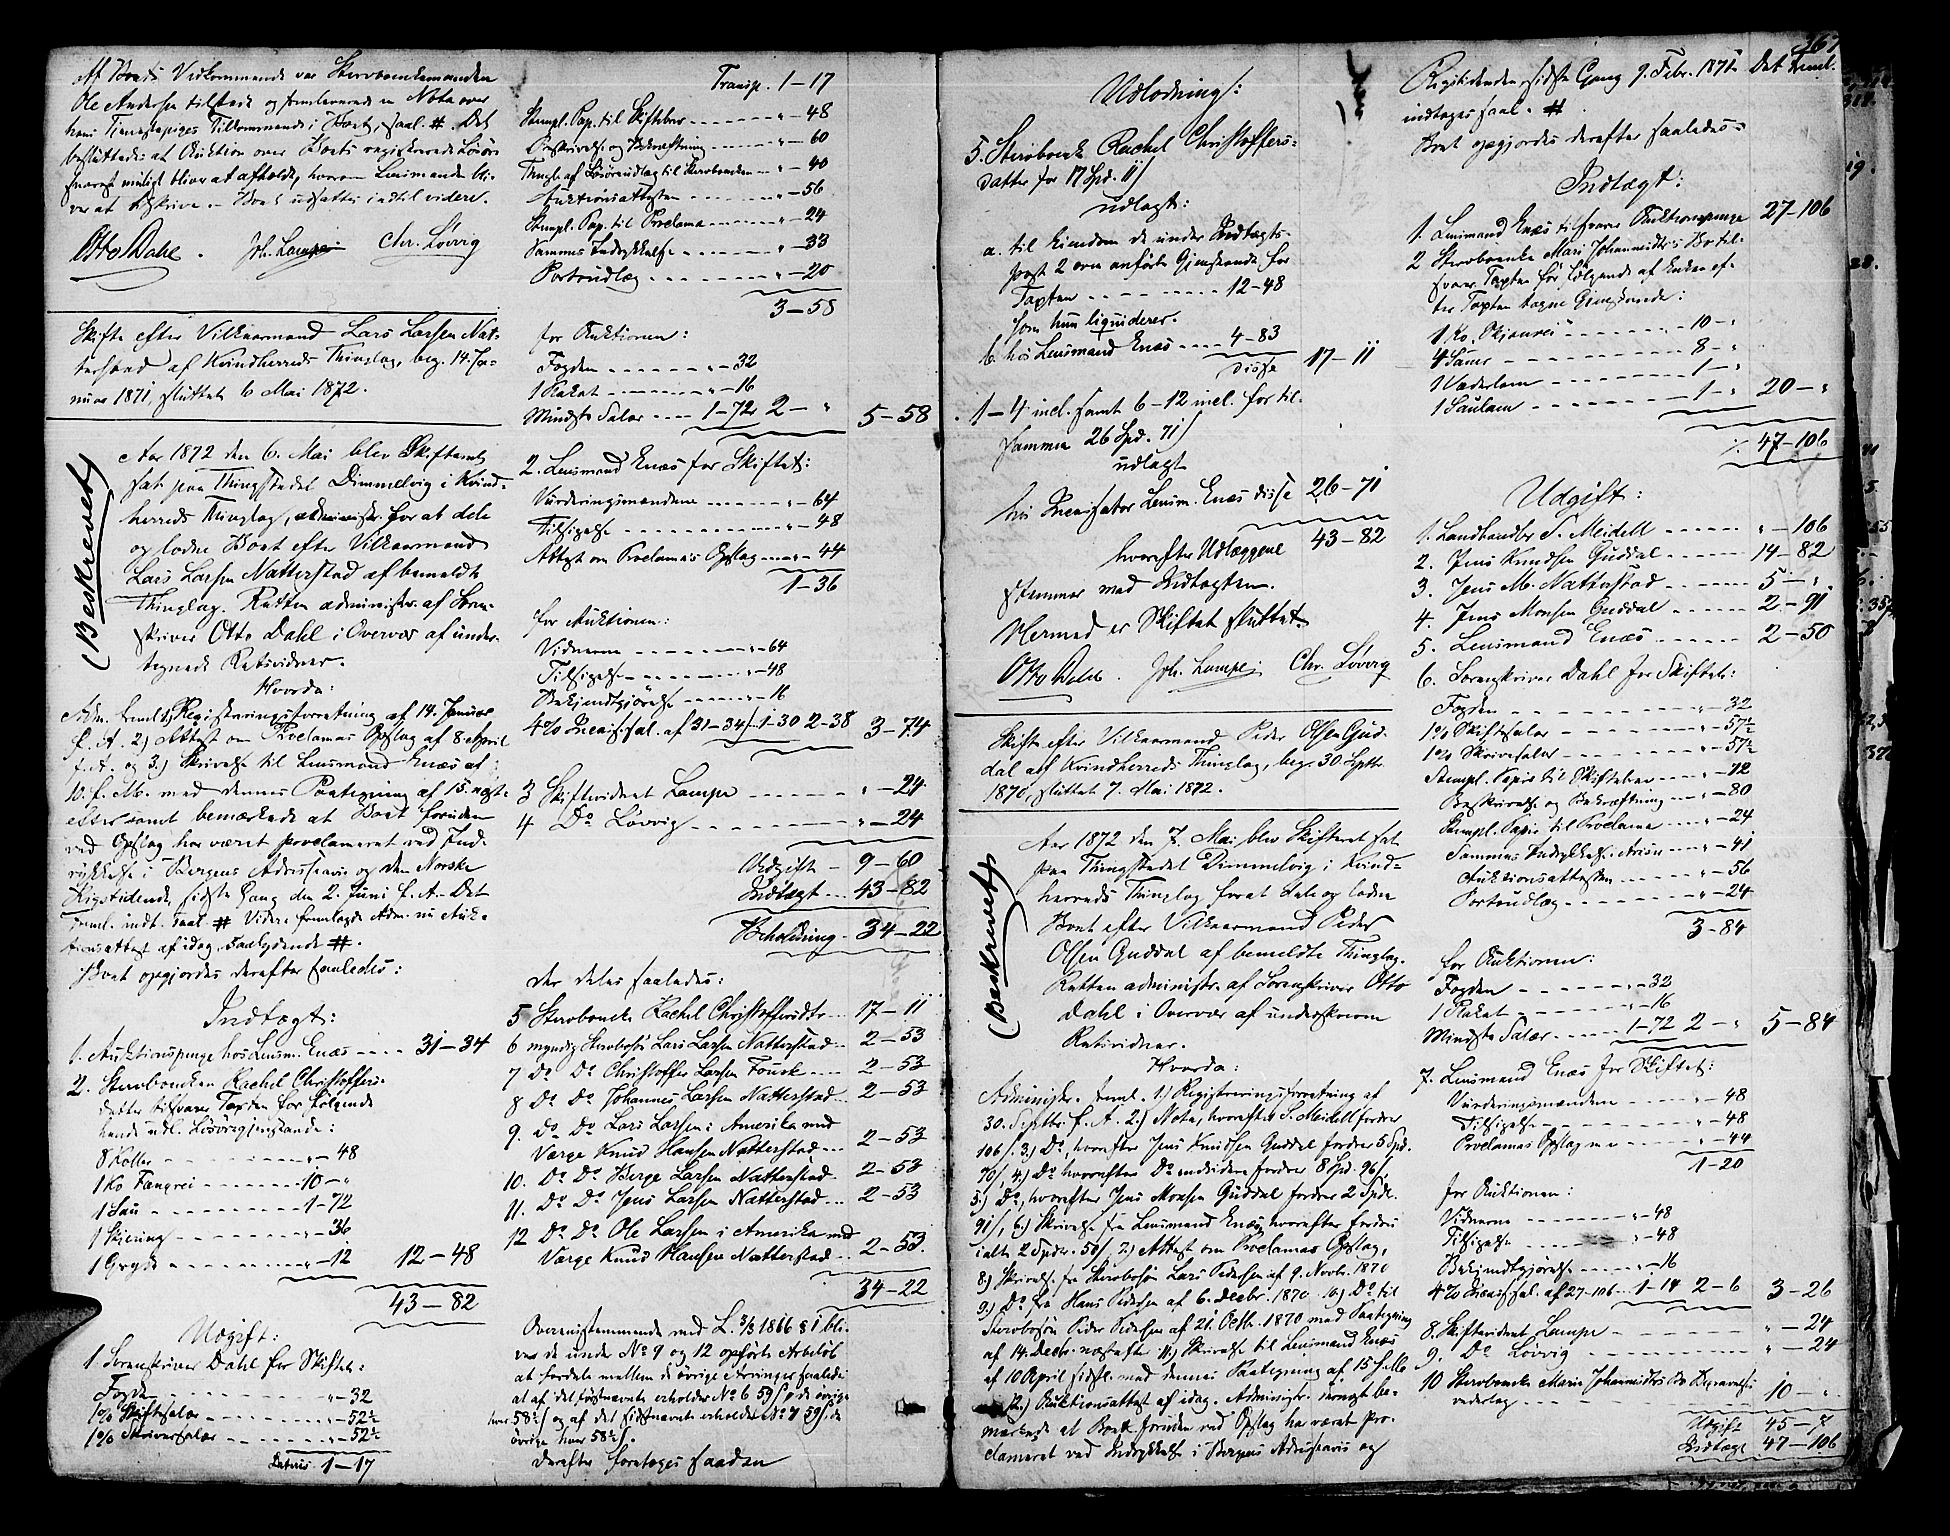 af Boets Vedkommende var Sterboenkemanden
Ole Andersen tilstede og fremleverede en Nota over
hans Tjenestepiges Tilkommende i Boet, saal. #. Det
besluttedes at Auktion over Boets registrerede Løsøre
snarest muligt bliver at afholde, hvorom Lensmanden bli-
ver at tilskrive. - Boet udsattes indtil videre.
Otto Dahl. Joh. Lampe Chr. Løvvig
Skifte efter Vilkaarmand Lars Larsen Nat-
terstad af Kvindherreds Thinglag, beg. 14. Ja-
nuar 1871, sluttet 6 Mai 1872.
(Beskrevet)
Aar 1872 den 6. Mai blev Skifteret
sat paa Thingstedet Dimmelvig i Kvind-
herreds Thinglag, for at dele
og lodne Boet efter Vilkaarmand
Lars Larsen Natterstad af bemeldte
Thinglag. Retten administr. af Soren-
skriver Otto Dahl i Overvær af under-
tegnede Retsvidner.
Hvorda:
Adm. freml. 1) Registreringsforretning af 14. Januar
f. A. 2) Attest om Proclamas Opslag af 8 April
f. A. og 3.) Skrivelse til Lensmand Enæs af
10. f. M. med dennes Paategning af 15. næst-
efter samt bemærkede at Boet foruden
ved Opslag har været proclameret ved Ind-
rykkelse i Bergens Adresseavis og den Norske
Rigstidende, sidste Gang den 2. Juni f. A. Det
freml. indt. saal. # Videre fremlagde Adm. nu Auk-
tionsattest af idag, saalydende #.
Boet opgjordes derefter saaledes:
Indtægt:
1. Auktionspenge hos Lensm. Enæs .... 31-34
2. Sterboenken Rachel Christoffers-
datter tilsvarer Taxten for følgende
hende udl. Løsøregjenstande:
8 Koller ------ " - 48
1 Ko Fangrei ------ 10 - "
1 Sau ------ 1-72
1 Skjering ------ " - 36
1 Gryde ------ " - 12 12-48
43-82
Udgift:
1 Sorenskriver Dahl for Skiftet:
Fogden ------ " - 32
1% Skiftesalær ------ " - 52½
1% Skriversalær ------ " - 52½
Lateris 1-17
Transp. 1-17
Stempl. Pap. til Skiftebrev ------ " - 48
Beskrivelse og Bekræftning ------ " - 60
Thingl. af Løsøreudlæg til Sterboenken -- " - 40
Auktionsattesten ------ " - 56
Stempl. Pap. til Proclama ------ " - 24
Sammes Indrykkelse ------ " - 33
Portoudlæg ------ " - 20
3-58
for Auktionen:
Fogden ------ " - 32
1 Plakat ------ " - 16
Mindste Salær .... 1-72 2 - " 5-58
2. Lensmand Enæs for Skiftet:
Vurderingsmændene ------ " - 64
Tilsigelse ------ " - 48
Attest om Proclamas Opslag --- " - 44
1-36
for Auktionen:
Vidnerne ------ " - 64
Tilsigelse ------ " - 48
Bekjendtgjørelse ------ " - 16
4% Incassosal. af 31-34 /: 1-30 2-38 3-74
3 Skiftevidnet Lampe ------ " - 24
4 Do Løvvig ------ " - 24
Udgift - 9-60
Indtægt .. 43-82
Beholdning - 34-22
der deles saaledes:
5 Sterboenke Rachel Christoffersdtr ... 17-11
6 myndig Sterbosøn Lars Larsen Natterstad.. 2-53
7 Do Do Christoffer Larsen ..... 2-53
8 Do Do Johannes Larsen Natterstad.. 2-53
9. Do Do Lars Larsen i Amerika med
Værge Knud Hansen Natterstad... 2-53
10. Do Do Børge Larsen Natterstad.. 2-53
11. Do Do Jens Larsen Natterstad... 2-53
12 Do Do Ole Larsen i Amerika med
Værge Knud Hansen Natterstad.. 2-53.
34-22
Overensstemmende med L. 3/3 1866 § 1 bli-
ver de under No 9 og 12 opførte Arvelod
at fordele mellem de øvrige Arvinger saaledes
at af det førstnævnte erholder No 6 59 s, de øvrige
hver 58½ s og af det sidstnævnte erholder No 7 59 s, de
øvrige hver 58½ s.
Derefter foretoges saadan
Udlodning:
5. Sterboenke Rachel Christoffers-
datter for 17 Spd. 11 s
udlagt:
a. til Eiendom de under Indtægts-
post 2 ovenanførte Gjenstande for
Taxten -------- 12-48
som hun liquiderer.
b. hos Lensmand Enæs ---- 4-83
disse 17-11
1-4 incl. samt 6-12 incl. for til-
sammen 26 Spd. 71 s
udlagt
hos Incassator Lensm. Enæs disse 26-71
hvorefter Udlæggene 43-82
stemmer med Indtægten.
Hermed er Skiftet sluttet.
Otto Dahl. Joh. Lampe. Chr. Løvvig
Skifte efter Vilkaarmand Peder Olsen Gud-
dal af Kvindherreds Thinglag, beg. 30. Septbr.
1870, sluttet 7. Mai 1872.
(Beskrevet)
Aar 1872 den 7. Mai blev Skifteret sat
paa Thingstedet Dimmelvig i Kvind-
herreds Thinglag for at dele og lodne
Boet efter Vilkaarmand Peder
Olsen Guddal af bemeldte Thinglag.
Retten administr. af Sorenskriver Otto
Dahl i Overvær af underskrevne
Retsvidner.
Hvorda:
Administr. freml. 1) Registreringsforretning af
30. Septbr. f. A. 2.) Nota, hvorefter S. Meidell fordrer
106 s. 3.) Do, hvorefter Jens Knudsen Guddal fordrer 5 Spd.
70 s, 4.) Do hvorefter Do endvidere fordrer 8 Spd. 96 s,
5.) Do, hvorefter Jens Monsen Guddal fordrer 2 Spdl.
91 s, 6.) Skrivelse fra Lensmand Enæs, hvorefter fordres
ialt 2 Spdr. 50 s, 7.) Attest om Proclamas Opslag,
8.) Skrivelse fra Sterbosøn Lars Pedersen af 9. Novbr. 1870
9.) Do fra Hans Pedersen af 6. Decbr. 1870. 10.) Do til
Sterbosøn Peder Pedersen af 21. Octbr. 1870 med Paategning
af 14. Decbr. næstefter. 11.) Skrivelse til Lensmand Enæs
af 10 April sidstl. med dennes Paategning af 15 s. M.
12.) Auktionsattest af idag. Administr. be-
mærkede at Boet foruden ved Opslag har været pro-
clameret ved Indrykkelse i Bergens Adresseavis og
367
Rigstidenden, sidste Gang 9. Febr. 1871. Det freml.
indtages saal. #
Boet opgjordes derefter saaledes:
Indtægt:
1. Lensmand Enæs tilsvarer Auktionspenge 27-106
2 Sterboenke Mari Johannesdtrs Bo til-
svarer Taxten for følgende af Enken ef-
ter Taxten tagne Gjenstande:
1 Ko, Skjønrei ------ 10 - "
4 Sauer ------ 8 - "
1 Væderlam ------ 1 - "
1 Saulam ------ 1 - " 20 - "
/. 47-106
Udgift:
1. Landhandler S. Meidell ------ " - 106
2. Jens Knudsen Guddal ------ 14-82
3. Jens M. Natterstad ------ 5 - "
4. Jens Monsen Guddal ------ 2-91
5. Lensmand Enæs ------ 2-50
6. Sorenskriver Dahl for Skiftet:
Fogden ------ " - 32
1% Skiftesalær ------ " - 57½
1% Skriversalær ------ " - 57½
Stempl. Papir til Skiftebrev ---- " - 72
Beskrivelse og Bekræftning ---- " - 80
Stempl. Papir til Proclama ---- " - 24
Sammes Indrykkelse i Aviser --- " - 41
Auktionsattesten ------ " - 56
Portoudlæg ------ " - 24
3-84
for Auktionen:
Fogden ------ " - 32
1 Plakat ------ " - 16
Mindste Salær ---- 1-72 2 - " 5-84
7. Lensmand Enæs for Skiftet:
Vurderingsmændene ------ " - 48
Tilsigelse ------ " - 48
Proclamas Opslag m. m. ---- " - 44
1-20
for Auktionen:
Vidnerne ------ " - 48
Tilsigelse ------ " - 48
Bekjendtgjørelse ------ " - 16
4% Incassosal. af 27-106 -- 1-14 2-6 3-26
8. Skiftevidnet Lampe ------ " - 24
9. Do Løvvig ------ " - 24
10 Sterboenke Marie Johannesdtrs Bo Begravelses-
vederlag ------ 10 - "
Udgift 45-7
Indtægt 47-106